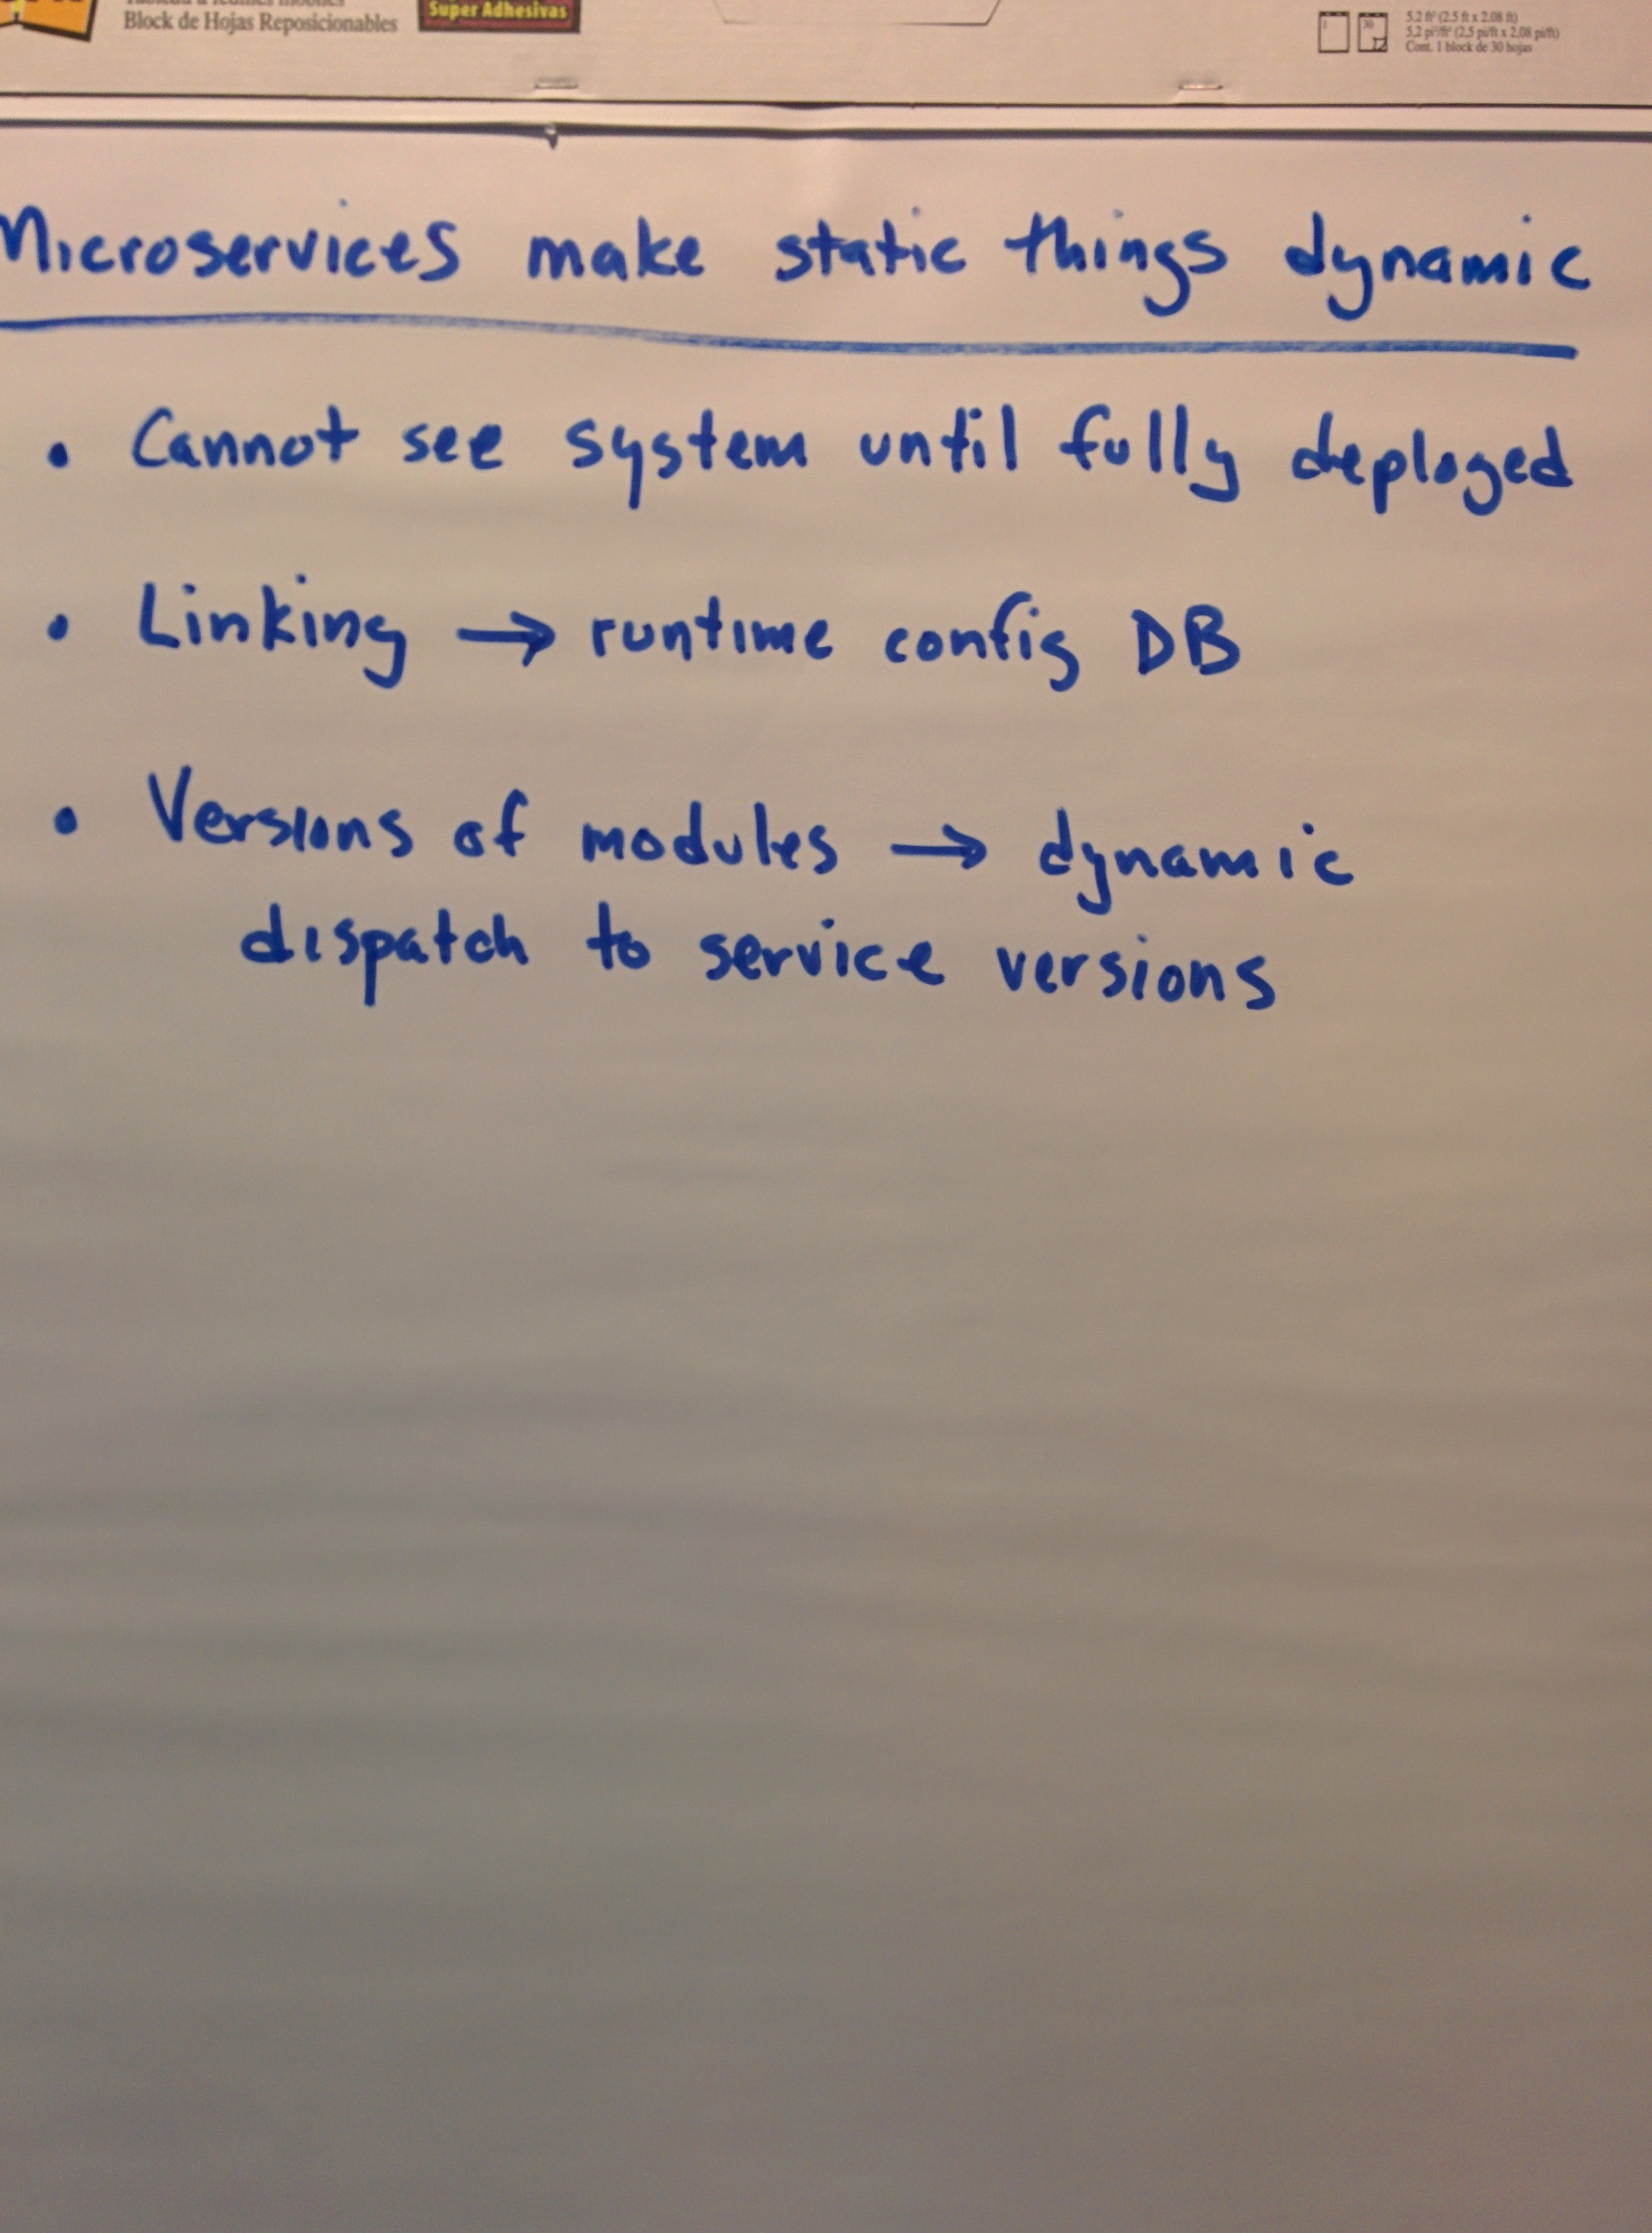 Block de Hojas Reposicionables
Super Adhesivas
5.2 ft² (2.5 ft x 2.08 ft)
5,2 pi²/ft² (2,5 pi/ft x 2,08 pi/ft)
Cont. 1 block de 30 hojas
1
30
Microservices make static things dynamic
• Cannot see system until fully deployed
• Linking → runtime config DB
• Versions of modules → dynamic
dispatch to service versions